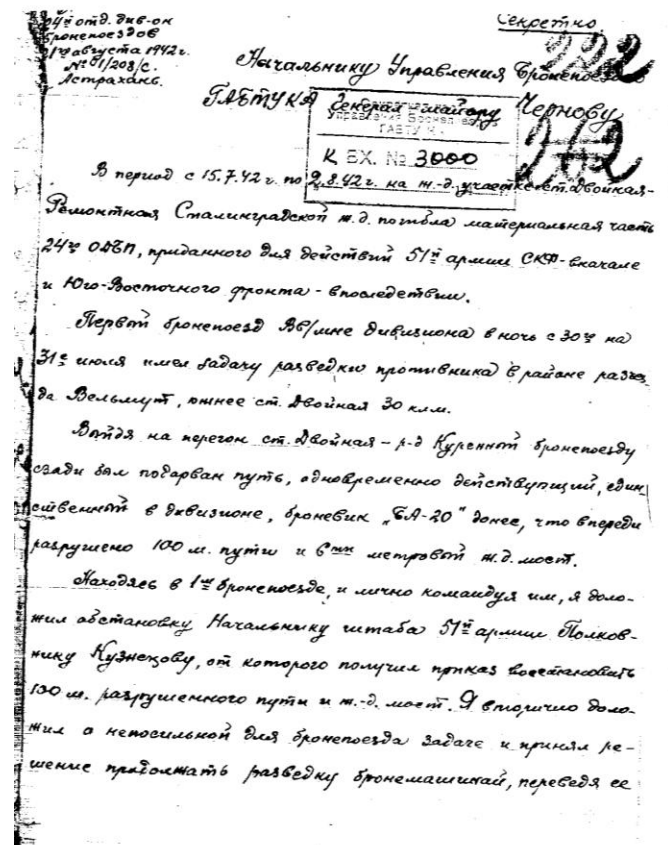 24й отд. див-он
бронепоездов
августа 1942 г.
№ 01/208/с.
Астрахань.
Секретно
222
Начальнику Управления
ГАБТУКА Генерал-майору Чернову
Управления
ГАБТУ К.А.
К ВХ. № 3000
262
В период с 15.7.42 г. по 2.8.42 г. на ж.-д. участке ст. Двойная-
Ремонтная Сталинградской ж.д. погибла материальная часть
24го ОДБП, приданного для действий 51й армии СКФ-вначале
и Юго-Восточного фронта - впоследствии.
Первый бронепоезд Вв/мне дивизиона в ночь с 30го на
31е июля имел задачу разведки противника в районе разъез
да Вельмут, южнее ст. Двойная 30 клм.
Выйдя на перегон ст. Двойная - р-д Куренный бронепоезду
сзади был подорван путь, одновременно действующий, един-
ственный в дивизионе, броневик „БА-20" донес, что впереди
разрушено 100 м. пути и 6ти метровый ж.д. мост.
Находясь в 1м бронепоезде, и лично командуя им, я доло-
жил обстановку Начальнику штаба 51й армии Полков-
нику Кузнецову, от которого получил приказ восстановить
100 м. разрушенного пути и ж.-д. мост. Я вторично доло-
жил о непосильной для бронепоезда задаче и принял ре-
шение продолжать разведку бронемашиной, переведя ее